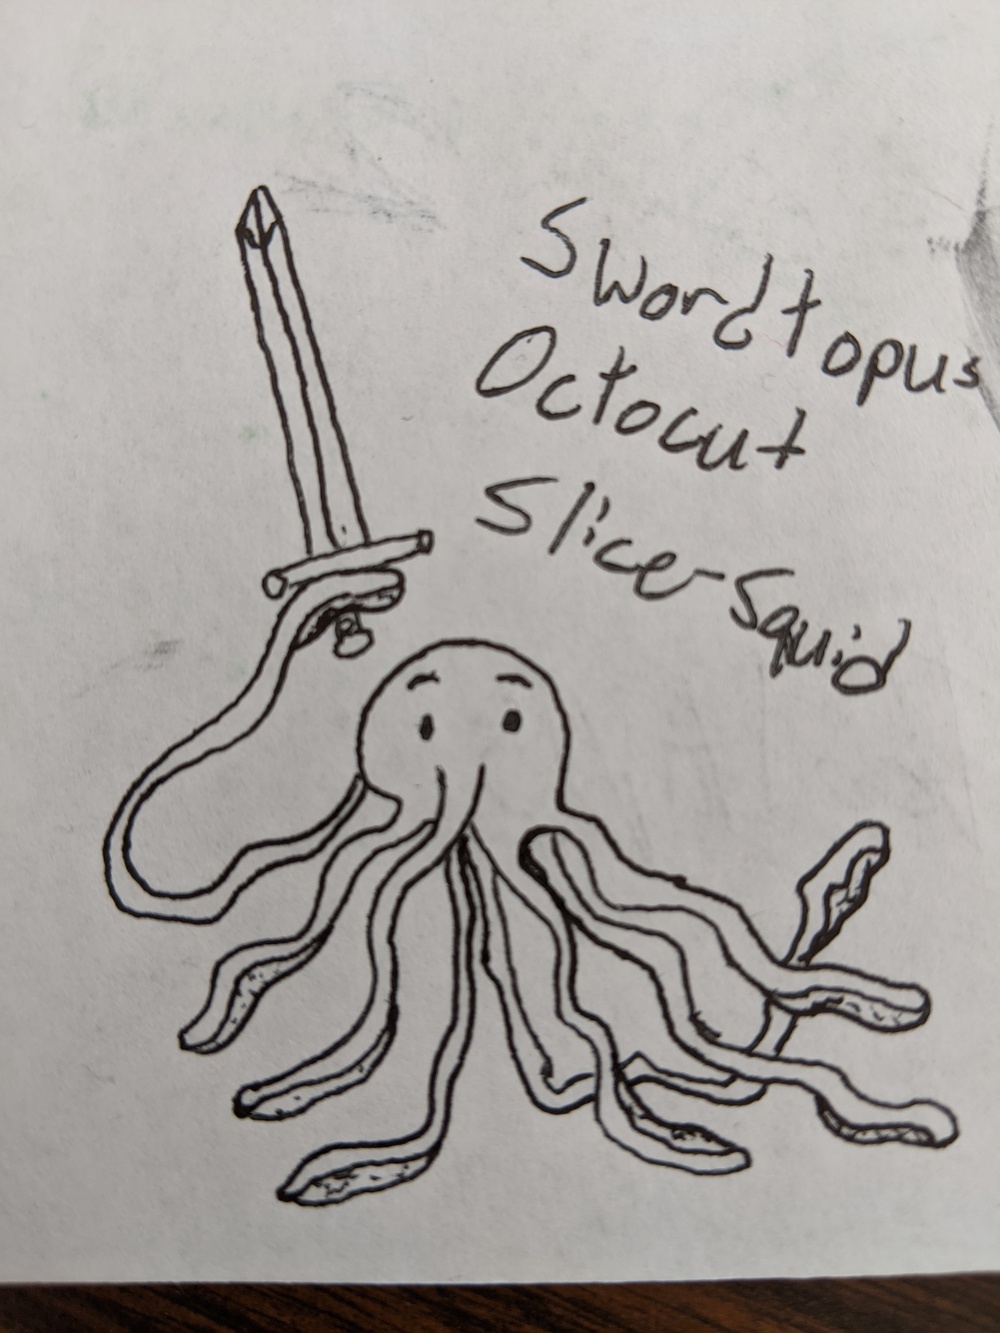 Swordtopus
Octocut
Slice-Squid